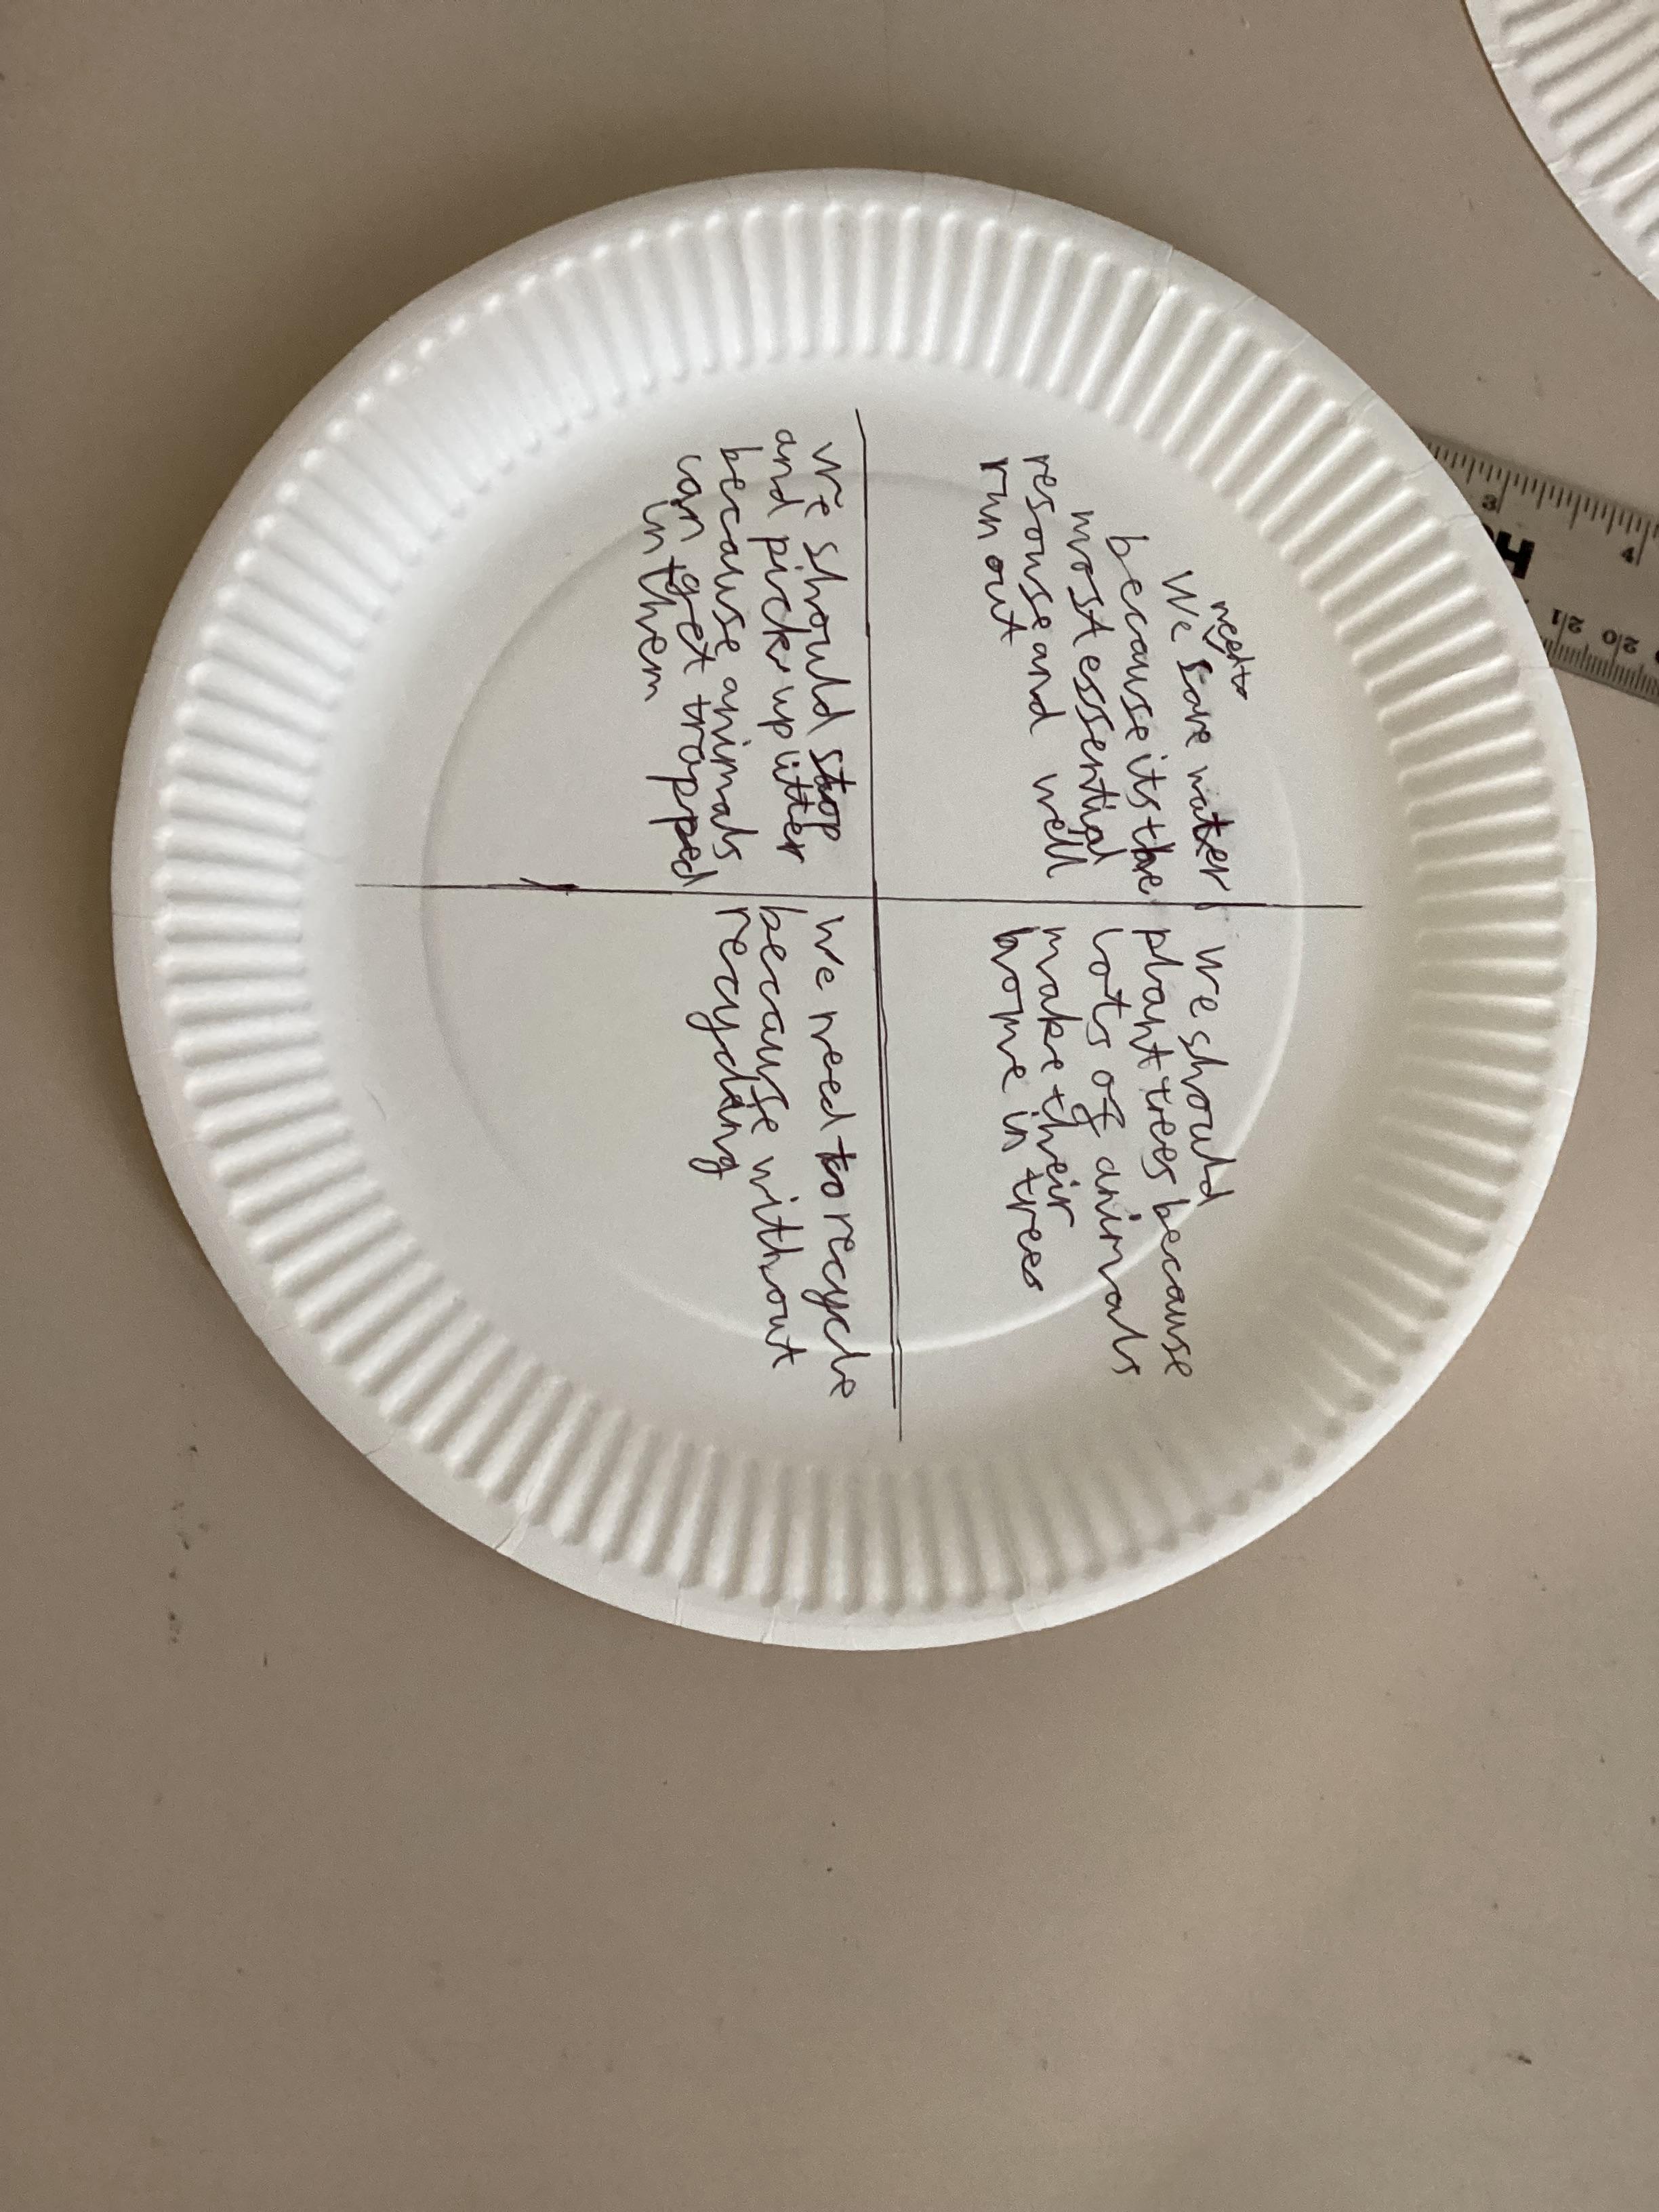 We need to save water
because its the
most essential
resourse and well
run out
we should
plant trees because
lots of animals
make their
home in trees
we should stop
and pick up litter
because animals
can get trapped
in them
we need to recycle
because without
recycling
3
4
12
20